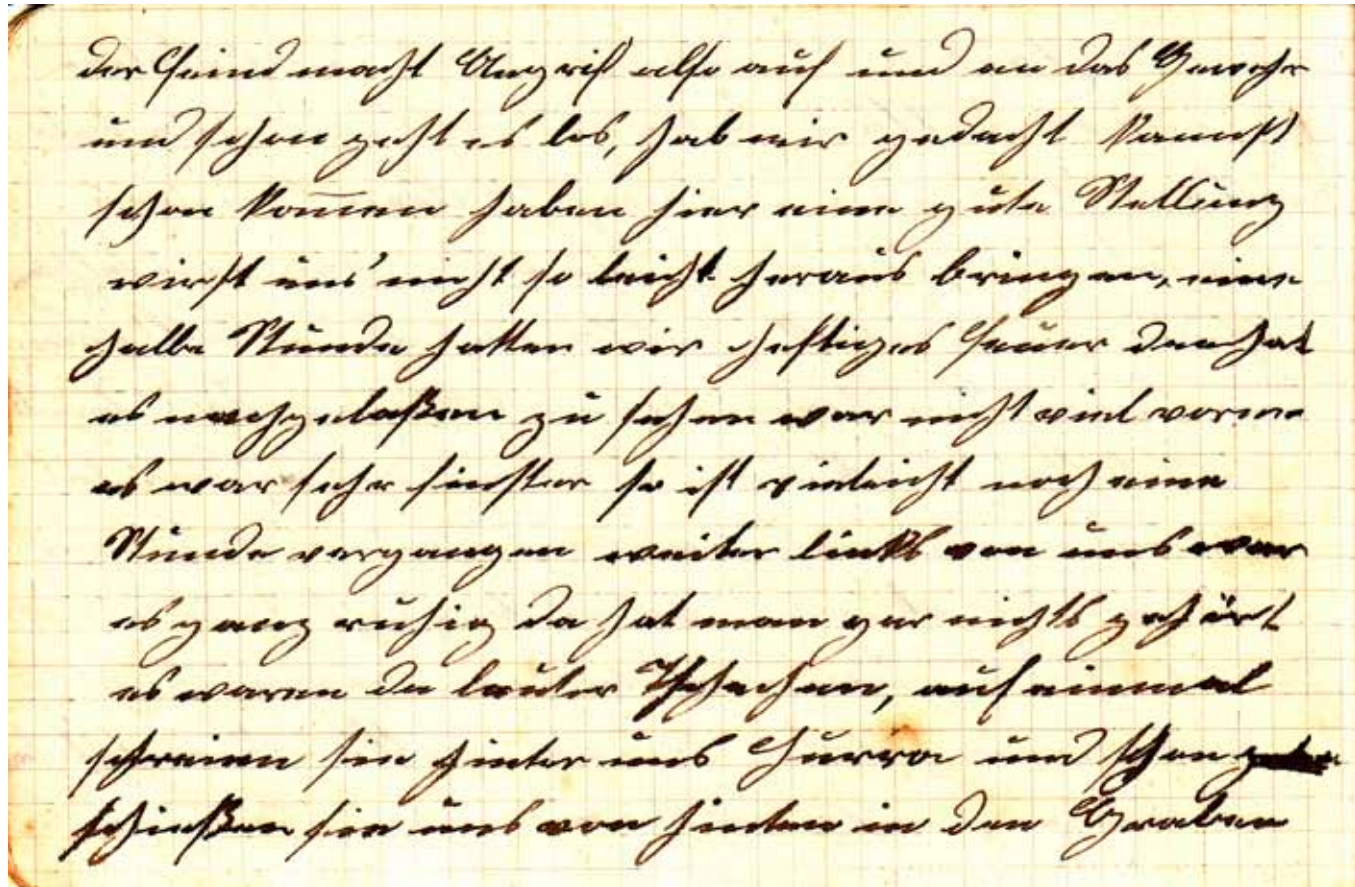 der Feind macht Angriff also auf und an das Gewehr
und schon geht es los, hab mir gedacht kannst
schon kom̄en haben hier eine gute Stellung
wirst uns nicht so leicht heraus bringen, eine
halbe Stunde hatten wir heftiges Feuer dan hat
es nachgelaßen zu sehen war nicht viel
es war sehr finster so ist vieleicht noch eine
Stunde vergangen weiter links von uns war
es ganz ruhig da hat man gar nichts gehört
es waren da lauter Tschechen, auf einmal
schreien sie hinter uns Hurra und schon
schießen sie uns von hinten in den Graben